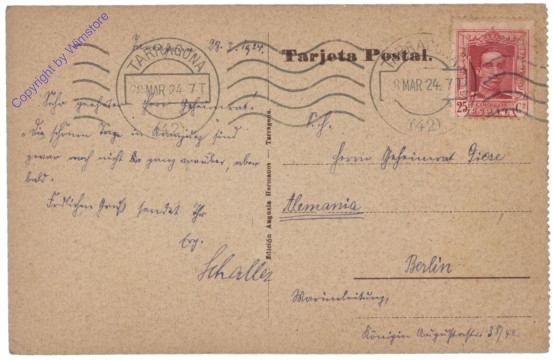 Copyright by Wimstore
28.3.1924.
TARRAGONA
28 MAR 24. 7 T
(42)
Sehr geehrter Herr Geheimrat!
"Die schönen Tage in Aranjuez sind
zwar noch nicht so ganz vorüber, aber
bald.
Herzlichen Gruß sendet Ihr
Erg.
Schaller
Edición Augusta Hermanos — Tarragona.
Tarjeta Postal.
TARRAGONA
28 MAR 24. 7 T
(42)
25
ESPAÑA
S.H.
Herrn Geheimrat Giese
Alemania
Berlin
Marineleitung,
Königin Auguststr. 38/42